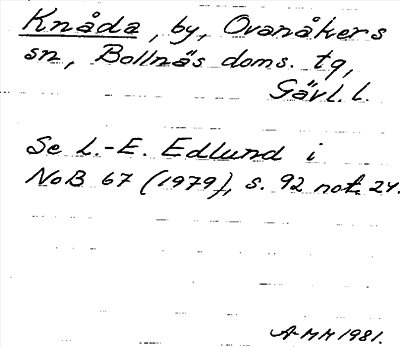 Knåda, by, Ovanåkers
sn, Bollnäs doms. tg,
Gävl. l.
Se L.-E. Edlund i
NoB 67 (1979), s. 92 not. 24.
A-MH 1981.